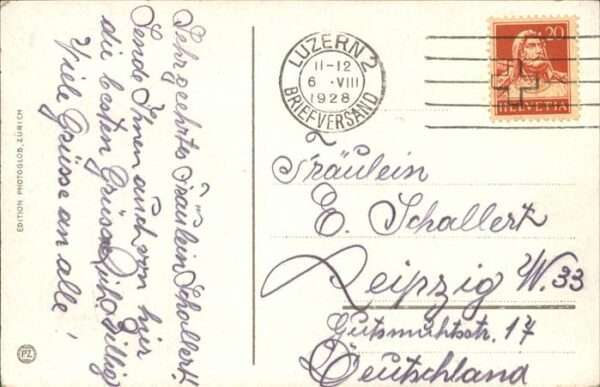 EDITION PHOTOGLOB, ZÜRICH
PZ
Sehr geehrtes Fräulein Schallert,
Sende Ihnen auch von hier
die besten Grüsse
Viele Grüsse an alle,
LUZERN 2
11-12
6 . VIII
1928
BRIEFVERSAND
20
HELVETIA
Fräulein
E. Schallert
Leipzig W. 33
Gutsmuthsstr. 17
Deutschland